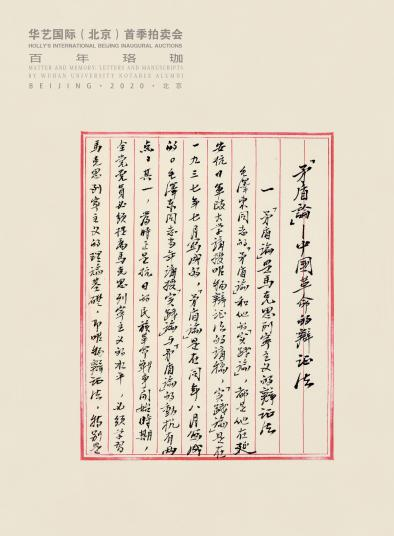 华艺国际（北京）首季拍卖会
HOLLY'S INTERNATIONAL BEIJING INAUGURAL AUCTIONS
百年珞珈
MATTER AND MEMORY: LETTERS AND MANUSCRIPTS
BY WUHAN UNIVERSITY NOTABLE ALUMNI
BEIJING·2020·北京
「矛盾論」—中國革命的辯证法
一 「矛盾論」是馬克思列寧主义的辯证法
毛澤东同志的「矛盾論」和他的「实踐論」，都是他在延
安抗日軍政大学講授唯物辯证法的講稿，「实踐論」是在
一九三七年七月写成的，「矛盾論」是在同年八月写成
的。毛澤东同志当年講授「实踐論」与「矛盾論」的動机有两
点：其一，當時正是抗日的民族革命戰争開始時期，
全党党員必须提高馬克思列寧主义的水平，必须学習
馬克思列寧主义的理論基礎，即唯物辯证法，特别是